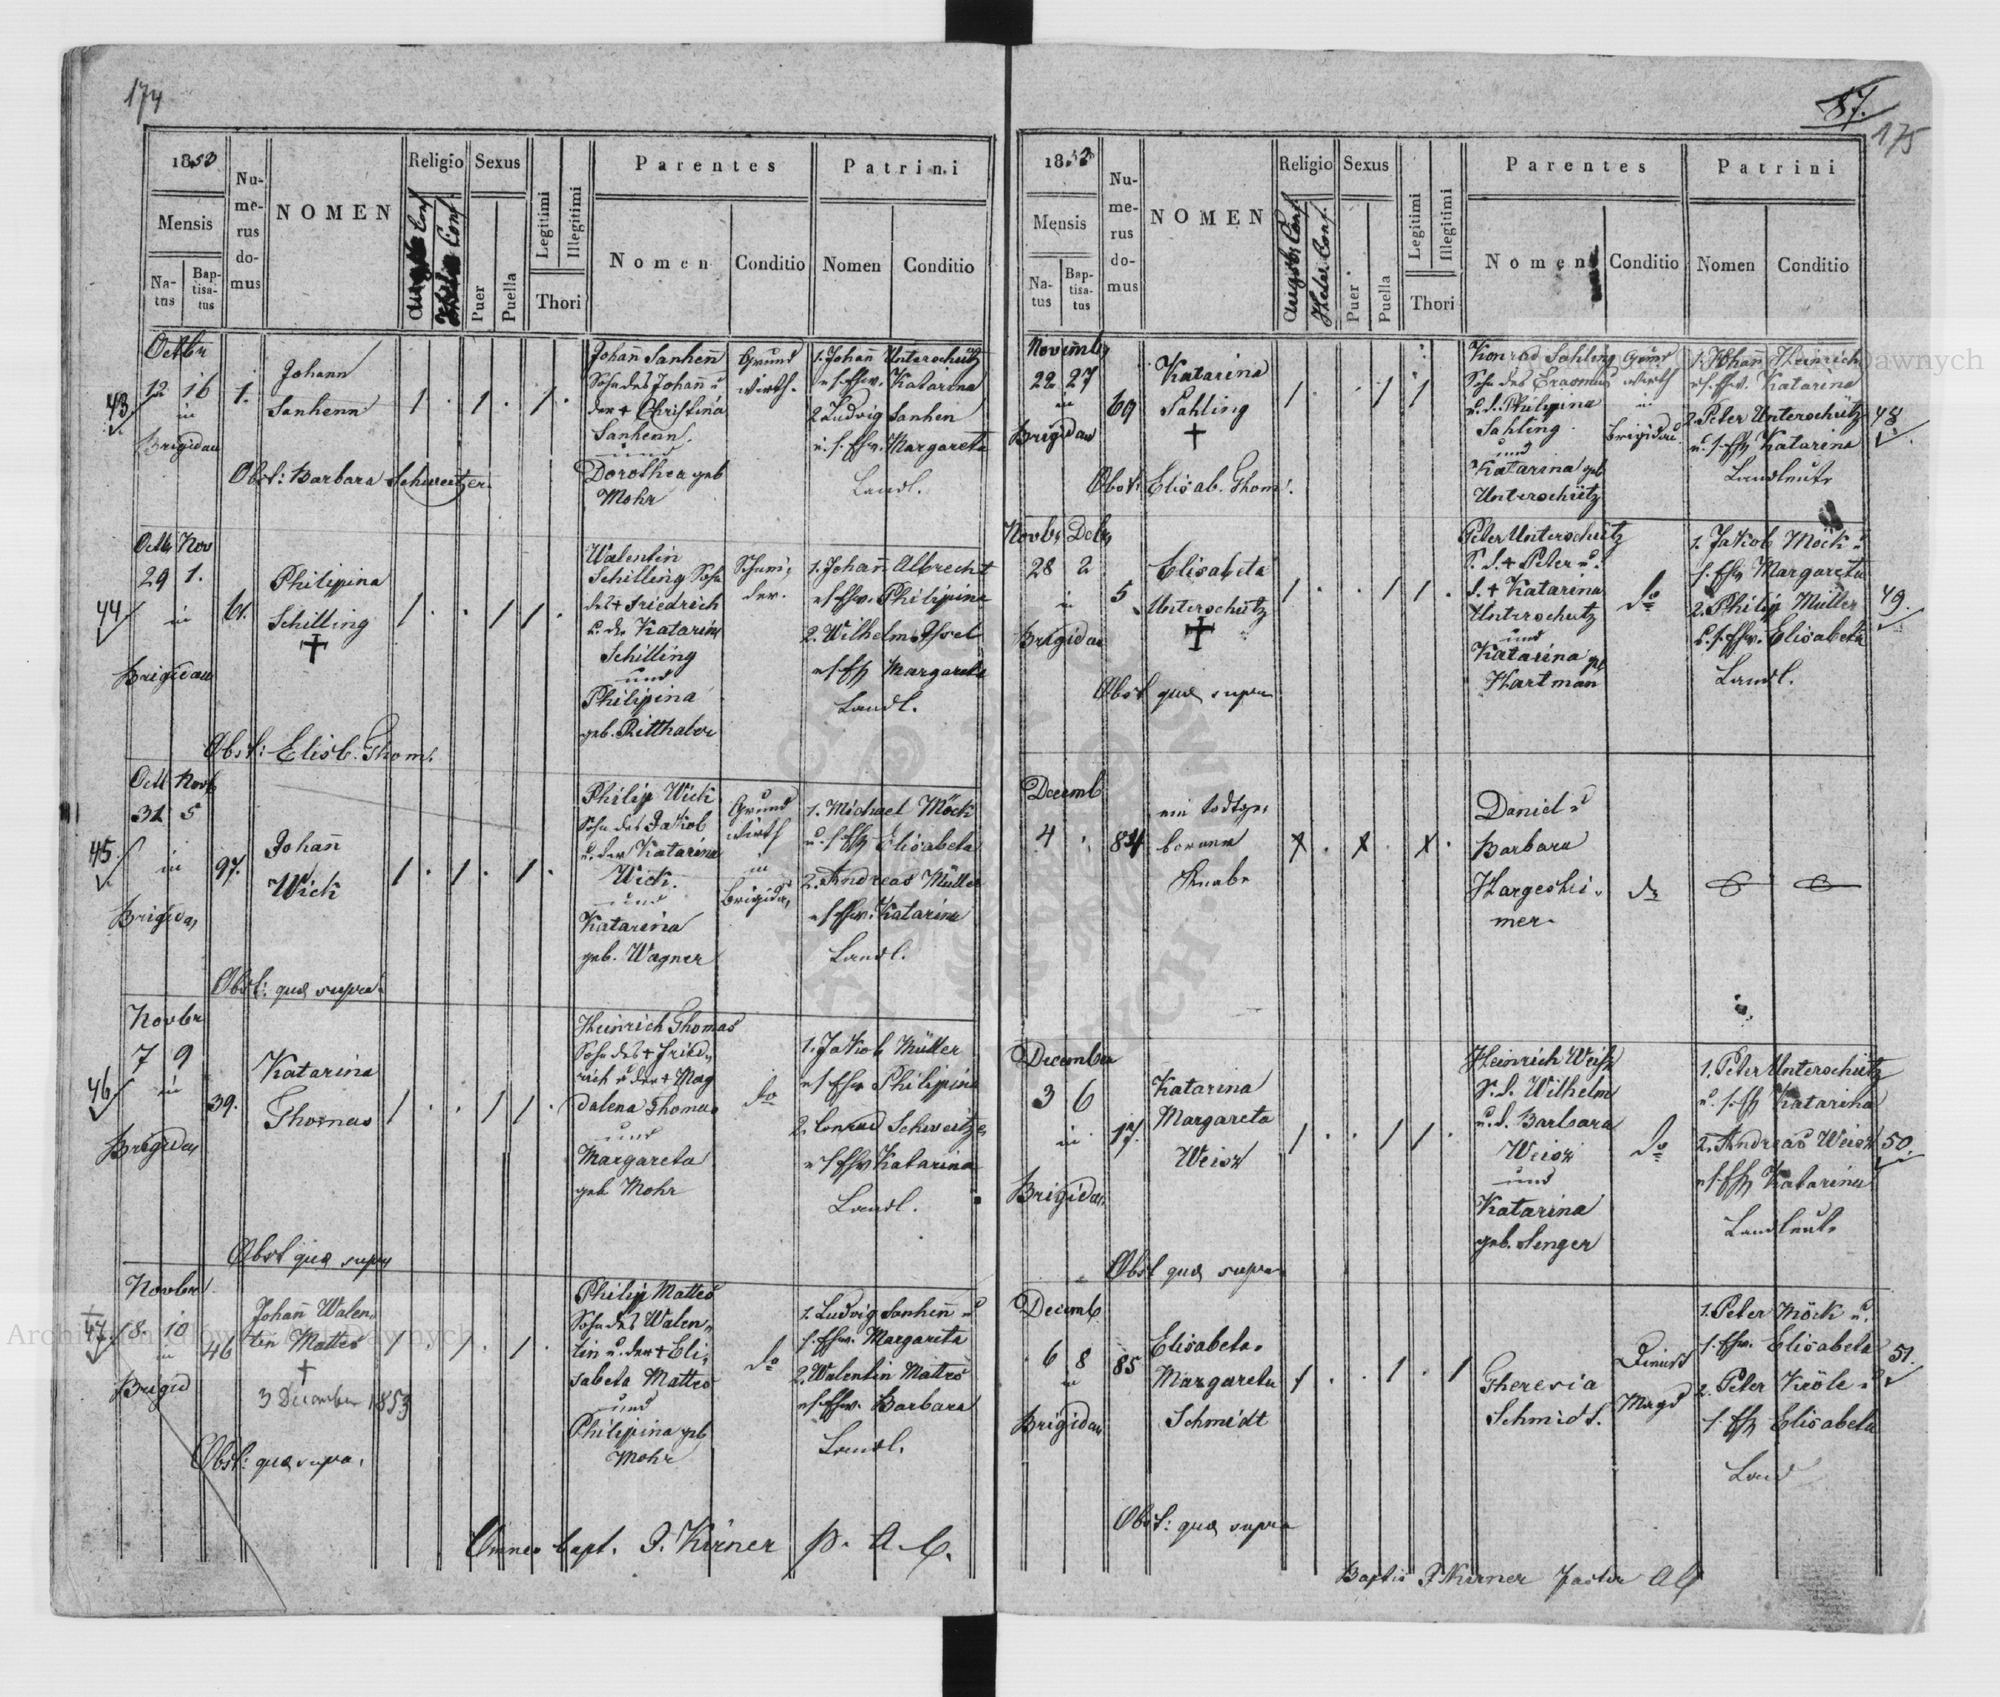 174
1853
Religio
Sexus
Parentes
Patrini
Mensis
Numerus domus
NOMEN
Augsb Conf
Helv Conf
Puer
Puella
Legitimi
Illegitimi
Thori
Natus
Baptisatus
Nomen
Conditio
Nomen
Conditio
43
Octbr
12 16
in
Brigidau
1.
Johann
Sanhenn
1 . 1 . 1 .
Johann Sanhenn
Sohn des Johann u
der + Christina
Sanhenn.
und
Dorothea geb
Mohr
Grund
wirth.
1. Johann Unterschütz
u s. Ehw. Katarina
2. Ludwig Sanhen
u. s. Ehw. Margareta
Landl.
Obst: Barbara Schweitzer
44
Octb Nov
29 1.
in
Brigidau
61.
Philippina
Schilling
+
1 . . 1 1 .
Walentin
Schilling Sohn
des + Friedrich
u. der Katarina
Schilling
und
Philipina
geb. Ritthaler
Schnei-
der.
1. Johann Albrecht
u s Ehw. Philipina
2. Wilhelm
u s Eh Margareta
Landl.
Obst: Elisb. Thom.
45
Octb Novb
31 5
in
Brigidau
97.
Johann
Wick
1 . 1 . 1 .
Philip Wick
Sohn des Jakob
u. der Katarina
Wick.
und
Katarina
geb. Wagner
Grund
wirth
in
Brigidau
1. Michael Möck
u. s. Eh Elisabeta
2. Andreas Müller
u s Ehw. Katarina
Landl.
Obst: quæ supra
46
Novbr
7 9
in
Brigidau
39.
Katarina
Thomas
1 . . 1 1 .
Heinrich Thomas
Sohn des + Fried-
rich u der + Mag
dalena Thomas
und
Margareta
geb Mohr
do
1. Jakob Müller
u s Ehw Philipina
2. Conrad Schweitzer
u s Ehw Katarina
Landl.
Obst quæ supra
47
Novber
8. 10
in
Brigid
46
Johann Walen-
tin Mattes
+
3 December 1853
1 . 1 . 1 .
Philip Mattes
Sohn des Walen-
tin u. der + Eli-
sabeta Mattes
und
Philipina geb
Mohr
do
1. Ludwig Sanhenn u
s. Ehw. Margareta
2. Walentin Mattes
u s. Ehw. Barbara
Landl.
Obst: quæ supra.
Omnes bapt. J. Kirner p. A. C.
87.
175
1853
Religio
Sexus
Parentes
Patrini
Mensis
Numerus domus
NOMEN
Augsb Conf
Helve Conf.
Puer
Puella
Legitimi
Illegitimi
Thori
Natus
Baptisatus
Nomen
Conditio
Nomen
Conditio
Novemb
22 27
in
Brigidau
69
Katarina
Sahling
+
1 . . 1 1
Konrad Sahling
Sohn des Erasmus
u. d. Philipina
Sahling.
und
Katarina geb
Unterschütz
Grund
wirth
in
Brigidau.
1. Johan Heinrich
u s. Ehw. Katarina
2. Peter Unterschütz
u. s. Eh Katarina
Landleute
48
Obst: Elisab. Thom.
Novb Decb
28 2
in
Brigidau
5
Elisabeta
Unterschütz
+
1 . . 1 1 .
Peter Unterschutz
S. d. + Peter u.
d. + Katarina
Unterschutz
und
Katarina geb
Hartman
do
1. Jakob Möck u
s. Ehw Margareta
2. Philip Müller
u. s. Ehw. Elisabeta
Landl.
49.
Obst quæ supra
Decemb
4
84
ein todtge-
borener
Knabe
x . x . x .
Daniel u
Barbara
Hargeshei-
mer
do
December
3 6
in
Brigidau
17.
Katarina
Margareta
Weisz
1 . . 1 1 .
Heinrich Weisz
S. d. Wilhelm
u. d. Barbara
Weisz
und
Katarina
geb. Senger
do
1. Peter Unterschütz
u. s. Eh Katarina
2. Andreas Weisz
u s. Eh Katarina
Landleute
50.
Obst quæ supra
Decemb
6 8
in
Brigidau
85
Elisabeta
Margareta
Schmidt
1 . . 1 . 1
Theresia
Schmidt.
Dienst
Magd
1. Peter Möck u.
s. Ehw. Elisabeta
2. Peter Kröle u
s. Eh Elisabeta
Land
51.
Obst: quæ supra
Baptis J Kirner Pastor AC